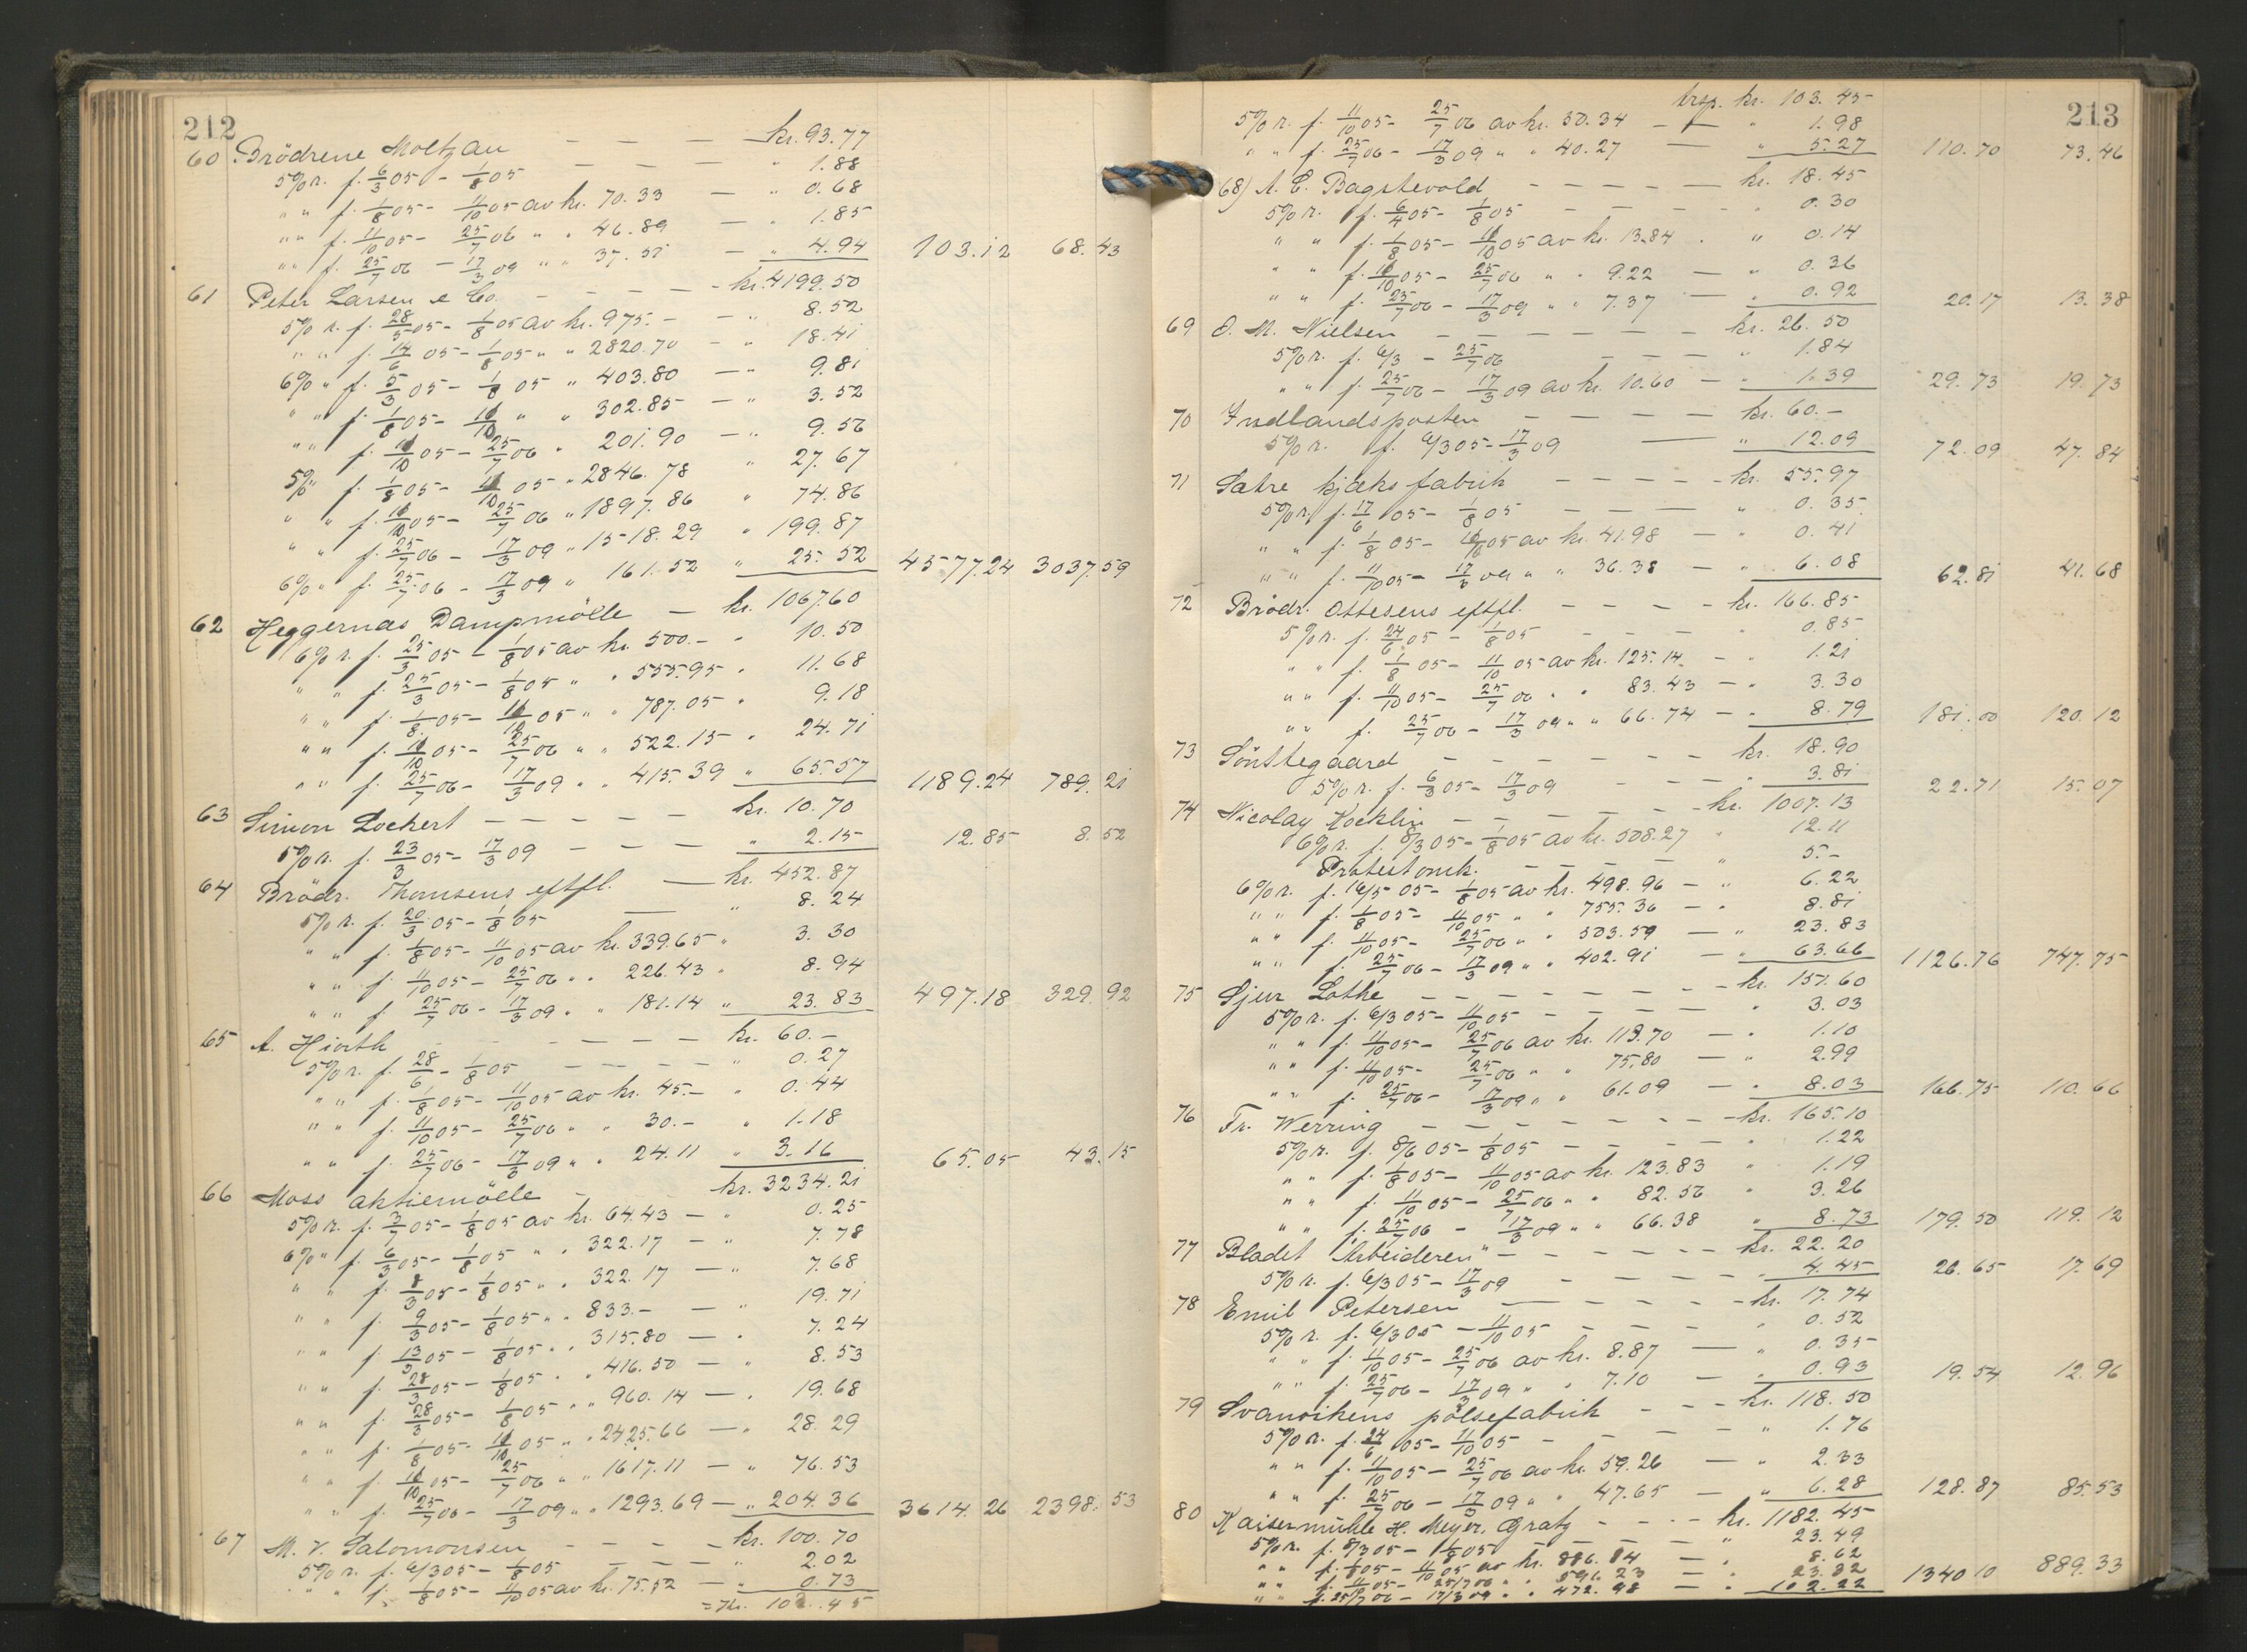 212
60. Brödrene Moltzau — — — kr. 93.77
5% r. f. 6/3 05 - 1/8 05 — — — " 1.88
" " f. 1/8 05 - 11/10 05 av kr. 70.33 — " 0.68
" " f. 11/10 05 - 25/7 06 " " 46.89 — " 1.85
" " f. 25/7 06 - 17/3 09 " " 37.51 — " 4.94 103.12 68.43
61 Peter Larsen & Co. — — — kr. 4199.50
5% r. f. 28/5 05 - 1/8 05 av kr. 975.- — " 8.52
" " f. 14/6 05 - 1/8 05 " " 2820.70 — " 18.41
6% " f. 5/3 05 - 1/8 05 " 403.80 — " 9.81
" " f. 1/8 05 - 11/10 " " 302.85 — " 3.52
" " f. 11/10 05 - 25/7 06 " 201.90 — " 9.56
5% " f. 1/8 05 - 11/10 05 " 2846.78 " 27.67
" " f. 11/10 05 - 25/7 06 " 1897.86 " 74.86
" " f. 25/7 06 - 17/3 09 " 1518.29 " 199.87
6% " f. 25/7 06 - 17/3 09 " 161.52 " 25.52 4577.24 3037.59
62 Heggernæs Dampmölle — kr. 1067.60
6% r. f. 25/3 05 - 1/8 05 av kr. 500.- " 10.50
" " f. 25/3 05 - 1/8 05 " " 555.95 " 11.68
" " f. 1/8 05 - 11/10 05 " " 787.05 " 9.18
" " f. 11/10 05 - 25/7 06 " " 522.15 " 24.71
" " f. 25/7 06 - 17/3 09 " " 415.39 " 65.57 1189.24 789.21
63 Simon Lockert — — — — kr. 10.70
5% r. f. 23/3 05 - 17/3 09 — — — " 2.15 12.85 8.52
64 Brödr. Thomsens eftfl. — kr. 452.87
5% r. f. 20/3 05 - 1/8 05 — " 8.24
" " f. 1/8 05 - 11/10 05 av kr. 339.65 " 3.30
" " f. 11/10 05 - 25/7 06 " " 226.43 " 8.94
" " f. 25/7 06 - 17/3 09 " " 181.14 " 23.83 497.18 329.92
65 A. Hiorth — — — — — kr. 60.-
5% r. f. 28/6 - 1/8 05 — — — — " 0.27
" " f. 1/8 05 - 11/10 05 av kr. 45.- " 0.44
" " f. 11/10 05 - 25/7 06 " " 30.- " 1.18
" " f. 25/7 06 - 17/3 09 " " 24.11 " 3.16 65.05 43.15
66 Moss aktiemölle — kr. 3234.21
5% r. f. 3/7 05 - 1/8 05 av kr. 64.43 — " 0.25
6% " f. 6/3 05 - 1/8 05 " " 322.17 — " 7.78
" " f. 8/3 05 - 1/8 05 " " 322.17 — " 7.68
" " f. 9/3 05 - 1/8 05 " " 833.- — " 19.71
" " f. 13/3 05 - 1/8 05 " " 315.80 — " 7.24
" " f. 28/3 05 - 1/8 05 " " 416.50 — " 8.53
" " f. 28/3 05 - 1/8 05 " " 960.14 — " 19.68
" " f. 1/8 05 - 11/10 05 " " 2425.66 — " 28.29
" " f. 11/10 05 - 25/7 06 " " 1617.11 — " 76.53
" " f. 25/7 06 - 17/3 09 " " 1293.69 — " 204.36 3614.26 2398.53
67 M. V. Salomonsen — — — — kr. 100.70
5% r. f. 6/3 05 - 1/8 05 — — — " 2.02
" " f. 1/8 05 - 11/10 05 av kr. 75.52 — " 0.73
kr. 103.45
213
trsp. kr. 103.45
5% r. f. 11/10 05 - 25/7 06 av kr. 50.34 — " 1.98
" " f. 25/7 06 - 17/3 09 " " 40.27 — " 5.27 110.70 73.46
68) A. C. Bagstevold — — — — — kr. 18.45
5% r. f. 6/4 05 - 1/8 05 — — — — " 0.30
" " f. 1/8 05 - 11/10 05 av kr. 13.84 " 0.14
" " f. 11/10 05 - 25/7 06 " " 9.22 — " 0.36
" " f. 25/7 06 - 17/3 09 " " 7.37 — " 0.92 20.17 13.38
69 O. M. Nielsen — — — — — kr. 26.50
5% r. f. 6/3 - 25/7 06 — — — " 1.84
" " f. 25/7 06 - 17/3 09 av kr. 10.60 — " 1.39 29.73 19.73
70 Indlandsposten — — — — kr. 60.-
5% r. f. 6/3 05 - 17/3 09 — " 12.09 72.09 47.84
71 Sætre kjæksfabrik — — — — kr. 55.97
5% r. f. 17/6 05 - 1/8 05 — — — " 0.35
" " f. 1/8 05 - 11/10 05 av kr. 41.98 — " 0.41
" " f. 11/10 05 - 17/3 09 " " 36.38 — " 6.08 62.81 41.68
72 Brödr. Ottesens eftfl. — — — — kr. 166.85
5% r. f. 24/6 05 - 1/8 05 — — — " 0.85
" " f. 1/8 05 - 11/10 05 av kr. 125.14 — " 1.21
" " f. 11/10 05 - 25/7 06 " " 83.43 — " 3.30
" " f. 25/7 06 - 17/3 09 " " 66.74 — " 8.79 181.00 120.12
73 Sönstegaard — — — — — kr. 18.90
5% r. f. 6/3 05 - 17/3 09 — — — " 3.81 22.71 15.07
74 Nicolay Kocklin — — — — kr. 1007.13
6% r. f. 8/3 05 - 1/8 05 av kr. 508.27 " 12.11
Protestomk. — — — — " 5.-
6% r. f. 16/5 05 - 1/8 05 av kr. 498.96 — " 6.22
" " f. 1/8 05 - 11/10 05 " " 755.36 — " 8.81
" " f. 11/10 05 - 25/7 06 " " 503.59 — " 23.83
" " f. 25/7 06 - 17/3 09 " " 402.91 — " 63.66 1126.76 747.75
75 Sjur Lothe — — — — — — kr. 151.60
5% r. f. 6/3 05 - 11/10 05 — — — — " 3.03
" " f. 11/10 05 - 25/7 06 av kr. 113.70 — " 1.10
" " f. 11/10 05 - 25/7 06 " " 75.80 — " 2.99
" " f. 25/7 06 - 17/3 09 " " 61.09 — " 8.03 166.75 110.66
76 Fr. Werring — — — — — — kr. 165.10
5% r. f. 8/6 05 - 1/8 05 — — — — " 1.22
" " f. 1/8 05 - 11/10 05 av kr. 123.83 " 1.19
" " f. 11/10 05 - 25/7 06 " " 82.56 " 3.26
" " f. 25/7 06 - 17/3 09 " " 66.38 " 8.73 179.50 119.12
77 Bladet "Arbeideren" — — — — — kr. 22.20
5% r. f. 6/3 05 - 17/3 09 — — — — " 4.45 26.65 17.69
78 Emil Petersen — — — — — kr. 17.74
5% r. f. 6/3 05 - 11/10 05 — — — — " 0.52
" " f. 11/10 05 - 25/7 06 av kr. 8.87 — " 0.35
" " f. 25/7 06 - 17/3 09 " " 7.10 — " 0.93 19.54 12.96
79 Svanvikens pölsefabrik — — — kr. 118.50
5% r. f. 24/6 05 - 11/10 05 — — — — " 1.76
" " f. 11/10 05 - 25/7 06 av kr. 59.26 — " 2.33
" " f. 25/7 06 - 17/3 09 " " 47.65 — " 6.28 128.87 85.53
80 Kaisermühle H. Meyer, Gratz — — — kr. 1182.45
5% r. f. 8/3 05 - 1/8 05 — — — — " 23.49
" " f. 1/8 05 - 11/10 05 av kr. 886.84 — " 8.62
" " f. 11/10 05 - 25/7 06 " " 591.23 — " 23.32
" " f. 25/7 06 - 17/3 09 " " 472.98 — " 102.22 1340.10 889.33